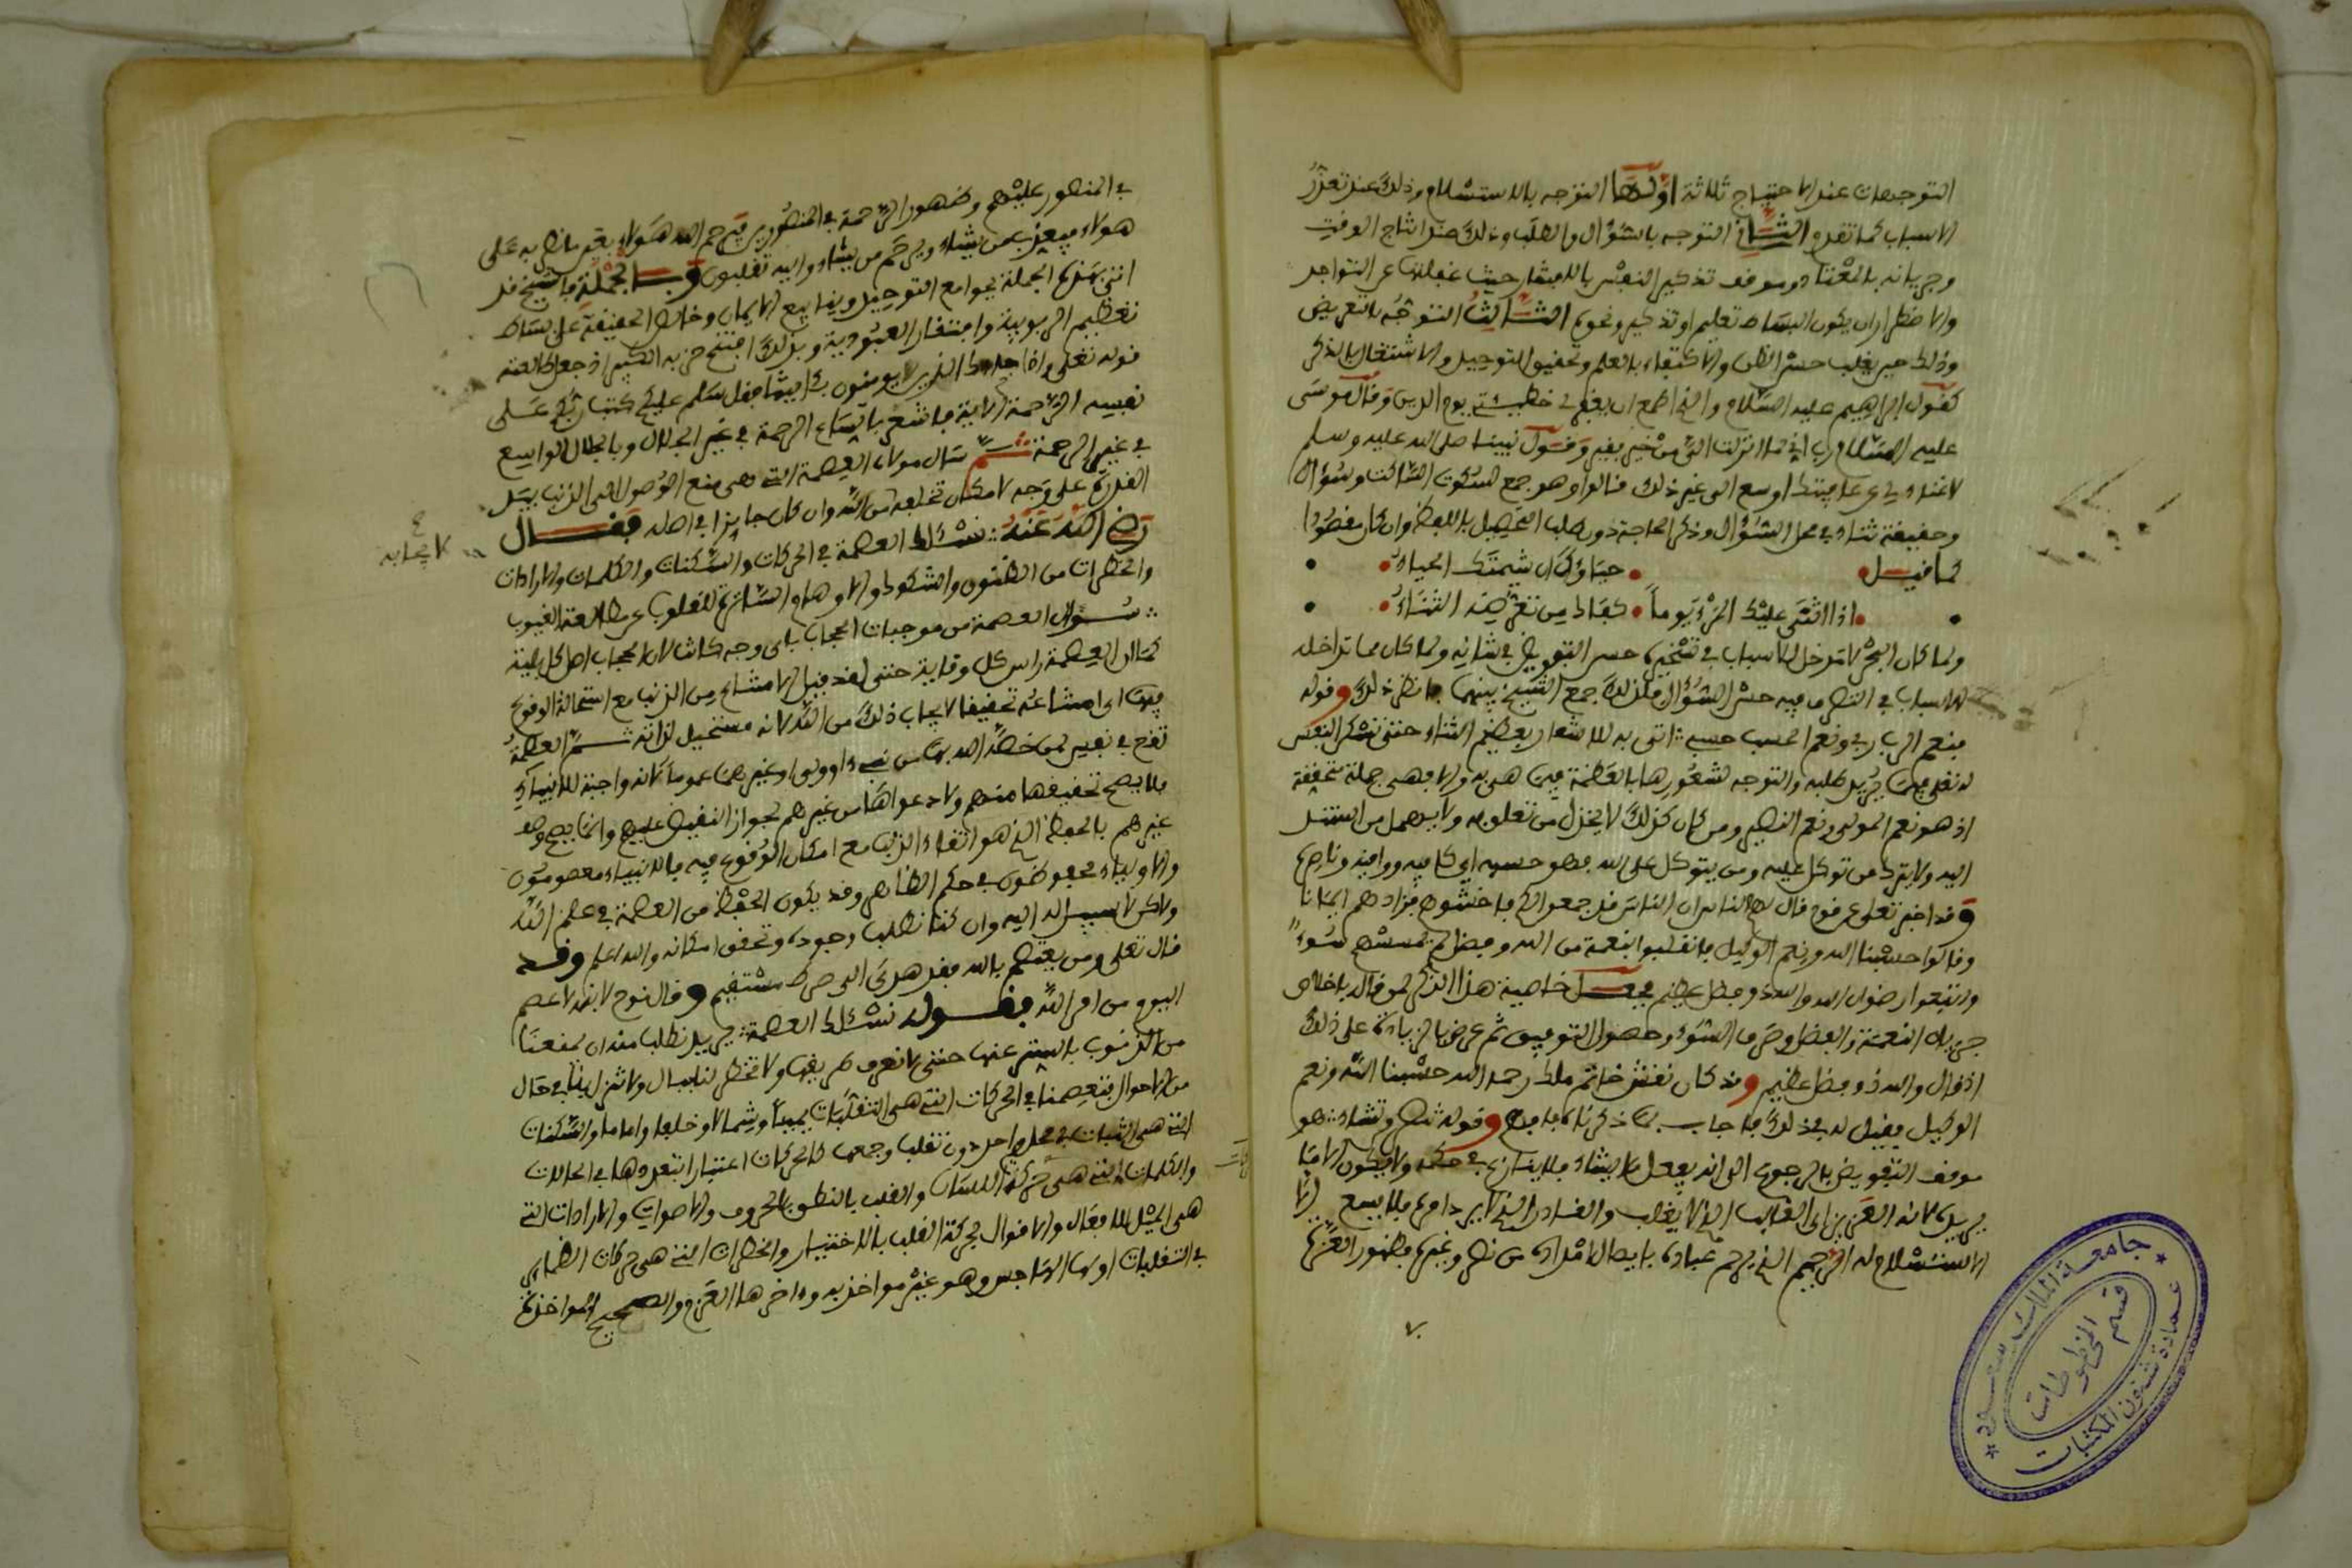 التوجهات عند الاحتياج ثلاثة اولها التوجه بالاستسلام وذلك عند تعذر
الاسباب كما تقدم الثاني التوجه بالسؤال والطلب وذلك عند اتساع الوقت
وجريانه بالمعتاد وموقف تذكير النفس بالافتقار حيث غفلتها عن التواجد
والاضطرار ان يكون البساط تعليم او تذكير ونحوه الثالث التوجه بالتعريض
وذلك حين يغلب حسن الظن والاكتفاء بالعلم وتحقيق التوحيد والاشتغال بالذكر
كقول ابراهيم عليه السلام والذي اطمع ان يغفر لي خطيئتي يوم الدين وقال موسى
عليه السلام رب اني لما انزلت الي من خير فقير وقول نبينا صلى الله عليه وسلم
لا غناء لي عن عافيتك اوسع الى غير ذلك قالوا وهو جمع للسكوت الساكت وسؤال
وحقيقة ثناء في محل السؤال وذكر الحاجة دون طلب التحصيل باللفظ وان كان مقصودا
كما قيل حياؤك ان شيمتك الحياء
اذا اثنى عليك المرء يوما كفاك من تعرضه الثناء
ولما كان البحر لا مدخل للاسباب في تسخيره حسن التفويض في شانه ولما كان مما تداخله
الاسباب في النظر ما فيه حسن السؤال فلذلك جمع الشيخ بينهما فانظر ذلك وقوله
فنعم الرب ربي ونعم الحسب حسبي اتى به للاشعار بعظيم الثناء حتى تشكر النفس
له تعلى فيما يريد طلبه والتوجه لشعورها بالعظمة فيمن هي به والا فهي جملة محققة
اذ هو نعم المولى ونعم النصير ومن كان كذلك لا يخذل من تعلق به ولا يهمل من استند
اليه ولا يترك من توكل عليه ومن يتوكل على الله فهو حسبه اي كافيه وواقيه وناصره
وقد اخبر تعلى عن قوم قال لهم الناس ان الناس قد جمعوا لكم فاخشوهم فزادهم ايمانا
وقالوا حسبنا الله ونعم الوكيل فانقلبوا بنعمة من الله وفضل لم يمسسهم سوء
واتبعوا رضوان الله والله ذو فضل عظيم فجعل خاصية هذا الذكر لمن قاله باخلاص
جريان النعمة والفضل وصرف السوء وحصول التوفيق ثم عرض بالزيادة على ذلك
اذ قال والله ذو فضل عظيم وقد كان نقش خاتم ملك رحمه الله حسبنا الله ونعم
الوكيل فقيل له في ذلك فاجاب بما ذكرناه فافهم وقوله تنصر من تشاء هو
موقف التفويض بالرجوع الى انه يفعل ما يشاء فلا ينازع في حكمه ولا يكون الا ما
يريده لانه العزيز اي الغالب الذي لا يغلب والقادر الذي لا يرد امره فلا يسع الا
الاستسلام له الرحيم الذي يرحم عباده بايصال الامداد من نصر وغيره فظهور العزة
٧
في المنصور عليهم وظهور الرحمة في المنصورين فيرحم الله هؤلاء بعين ما ظهر به على
هؤلاء فيعذب من يشاء ويرحم من يشاء واليه تقلبون وبالجملة فالشيخ قد
اتى بهذه الجملة بجوامع التوحيد وينابيع الايمان وخالص الحقيقة على بساط
تعظيم الربوبية وافتقار العبودية وبذلك افتتح حزبه الكبير اذ جعل طالعته
قوله تعلى واذا جاءك الذين يومنون بئاياتنا فقل سلم عليكم كتب ربكم على
نفسه الرحمة الاية فاشعر باتساع الرحمة في غير الجلال وبالجلال الواسع
في غير الرحمة ثم سال مولاه العصمة التي هي منع الوصول الى الذنب بسد
القدرة على وجه لا يمكن تخلفه من الله وان كان جايزا في اصله فقال
رضي الله عنه نسئلك العصمة في الحركات والسكنات والكلمات والارادات
والخطرات من الظنون والشكوك والاوهام الساترة للقلوب عن مطالعة الغيوب
سؤال العصمة من موجبات الحجاب باي وجه كانت لان الحجاب اصل كل بلية
كما ان العصمة راس كل وقاية حتى لقد قيل
فهي اي امتناعه تحقيقا لايجاب ذلك من الله لانه مستحيل لذاته ثم العصمة
فلا يصح تحقيقها منهم ولا دعواها من غيرهم لجواز النقيض عليهم وانما يصح وصف
غيرهم بالحفظ الذي هو انتفاء الذنب مع امكان الوقوع فيه فالانبياء معصومون
والاولياء محفوظون في حكم الظاهر وقد يكون الحفظ من العصمة في علم الله
ولاكن لا سبيل اليه وان كنا نطلب وجوده وتحقق امكانه والله اعلم وقد
قال تعلى ومن يعتصم بالله فقد هدي الى صرط مستقيم وقال نوح لابنه لا عاصم
اليوم من امر الله فقوله نسئلك العصمة يريد نطلب منك ان تمنعنا
من الذنوب بالستر عنها حتى لا نعرف طريقها ولا تخطر لنا ببال ولا تنزل بنا في حال
من الاحوال فتعصمنا في الحركات التي هي التقلبات يمينا وشمالا وخلفا واماما والسكنات
التي هي الثبات في محل واحد دون تقلب وجمعها كالحركات اعتبارا بتعددها في الحالات
والكلمات التي هي حركة اللسان والقلب بالنطق بالحروف والاصوات والارادات التي
هي الميل للافعال والاقوال بحركة القلب بالاختيار والخطرات التي هي حركات الضماير
في التقلبات اولها الهاجس وهو غير مواخذ به واخرها العزم والصحيح المواخذة
جامعة الملك سعود
عمادة شئون المكتبات
قسم المخطوطات